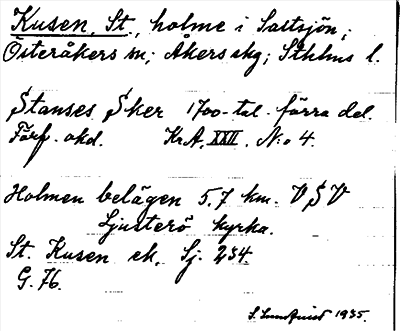 Kusen, St, holme i Saltsjön;
Österåkers sn; Åkers skg; Sthlms l.
Stanses Sker 1700-tal. förra del.
Förf. okd. Kr.A. XXII. N:o 4.
Holmen belägen 5,7 km. VSV
Ljusterö kyrka.
St. Kusen ek. Sj. 234.
G. 76.
S. Lundquist 1935.